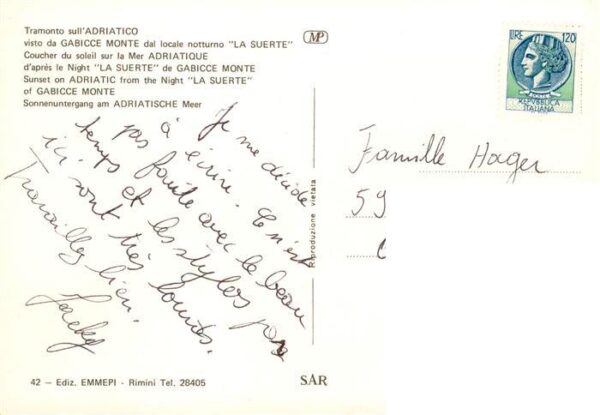 Tramonto sull'ADRIATICO
visto da GABICCE MONTE dal locale notturno "LA SUERTE"
Coucher du soleil sur la Mer ADRIATIQUE
d'aprés le Night "LA SUERTE" de GABICCE MONTE
Sunset on ADRIATIC from the Night "LA SUERTE"
of GABICCE MONTE
Sonnenuntergang am ADRIATISCHE Meer
MP
LIRE 120
REPVBBLICA
ITALIANA
Je me décide
à écrire. Ce n'est
pas faute avec le beau
temps et les stylos
ici sont très lourds.
Travaillez bien.
Jacky
Riproduzione vietata
Famille Hager
59
42 – Ediz. EMMEPI - Rimini Tel. 28405
SAR